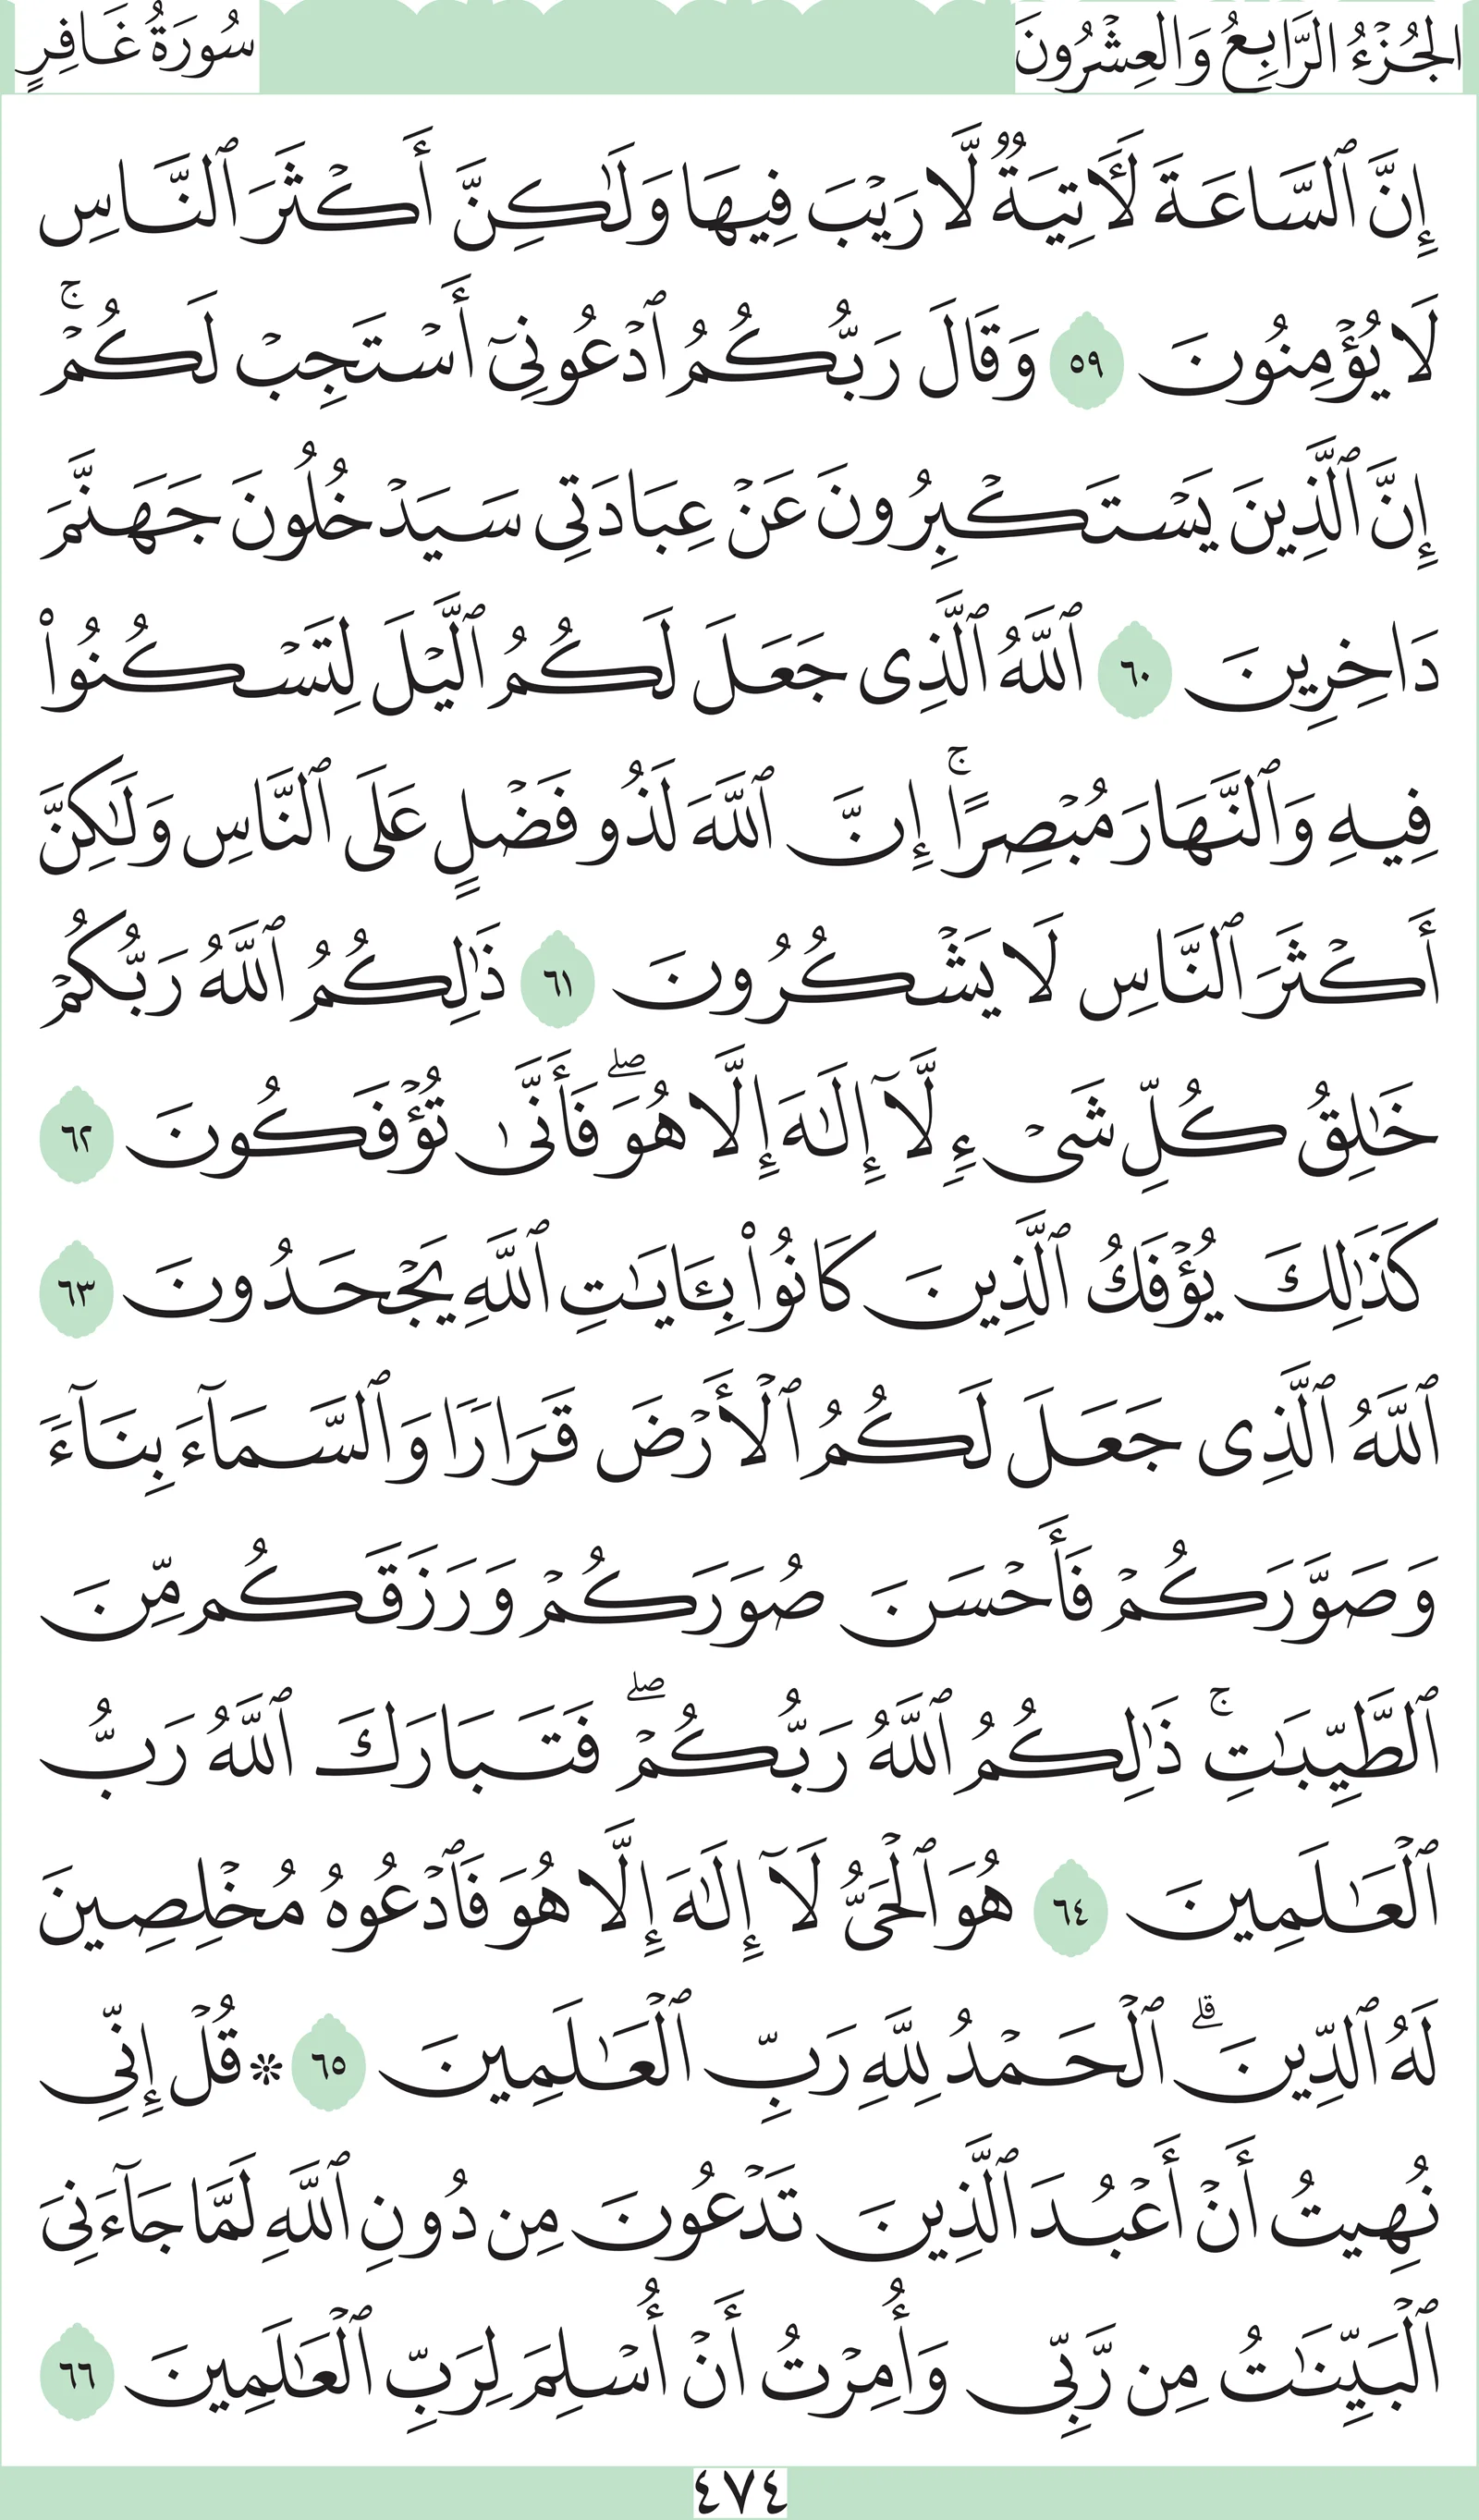 الجُزْءُ الرَّابِعُ وَالعِشْرُونَ
سُورَةُ غَافِرٍ
إِنَّ ٱلسَّاعَةَ لَأٓتِيَةٌ لَّا رَيْبَ فِيهَا وَلَٰكِنَّ أَكْثَرَ ٱلنَّاسِ
لَا يُؤْمِنُونَ ٥٩ وَقَالَ رَبُّكُمُ ٱدْعُونِىٓ أَسْتَجِبْ لَكُمْۚ
إِنَّ ٱلَّذِينَ يَسْتَكْبِرُونَ عَنْ عِبَادَتِى سَيَدْخُلُونَ جَهَنَّمَ
دَاخِرِينَ ٦٠ ٱللَّهُ ٱلَّذِى جَعَلَ لَكُمُ ٱلَّيْلَ لِتَسْكُنُوا۟
فِيهِ وَٱلنَّهَارَ مُبْصِرًاۚ إِنَّ ٱللَّهَ لَذُو فَضْلٍ عَلَى ٱلنَّاسِ وَلَٰكِنَّ
أَكْثَرَ ٱلنَّاسِ لَا يَشْكُرُونَ ٦١ ذَٰلِكُمُ ٱللَّهُ رَبُّكُمْ
خَٰلِقُ كُلِّ شَىْءٍ لَّآ إِلَٰهَ إِلَّا هُوَۖ فَأَنَّىٰ تُؤْفَكُونَ ٦٢
كَذَٰلِكَ يُؤْفَكُ ٱلَّذِينَ كَانُوا۟ بِـَٔايَٰتِ ٱللَّهِ يَجْحَدُونَ ٦٣
ٱللَّهُ ٱلَّذِى جَعَلَ لَكُمُ ٱلْأَرْضَ قَرَارًا وَٱلسَّمَآءَ بِنَآءً
وَصَوَّرَكُمْ فَأَحْسَنَ صُوَرَكُمْ وَرَزَقَكُم مِّنَ
ٱلطَّيِّبَٰتِۚ ذَٰلِكُمُ ٱللَّهُ رَبُّكُمْۖ فَتَبَارَكَ ٱللَّهُ رَبُّ
ٱلْعَٰلَمِينَ ٦٤ هُوَ ٱلْحَىُّ لَآ إِلَٰهَ إِلَّا هُوَ فَٱدْعُوهُ مُخْلِصِينَ
لَهُ ٱلدِّينَۗ ٱلْحَمْدُ لِلَّهِ رَبِّ ٱلْعَٰلَمِينَ ٦٥ ۞ قُلْ إِنِّى
نُهِيتُ أَنْ أَعْبُدَ ٱلَّذِينَ تَدْعُونَ مِن دُونِ ٱللَّهِ لَمَّا جَآءَنِىَ
ٱلْبَيِّنَٰتُ مِن رَّبِّى وَأُمِرْتُ أَنْ أُسْلِمَ لِرَبِّ ٱلْعَٰلَمِينَ ٦٦
٤٧٤